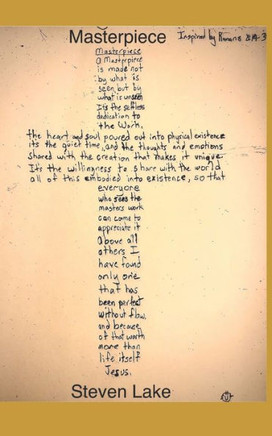 Masterpiece
Inspired by Romans 8:14-3
Masterpiece
A Masterpiece
is made not
by what is
seen but by
what is unseen
Its the selfless
dedication to
the Work,
the heart and soul poured out into physical existence
its the quiet time, and the thoughts and emotions
shared with the creation that makes it unique.
Its the willingness to share with the world
all of this embodied into existence, so that
everyone
who sees the
masters work
can come to
appreciate it
Above all
others I
have found
only one
that has
been perfect
without flaw,
and because
of that worth
more than
life itself
Jesus.
Steven Lake